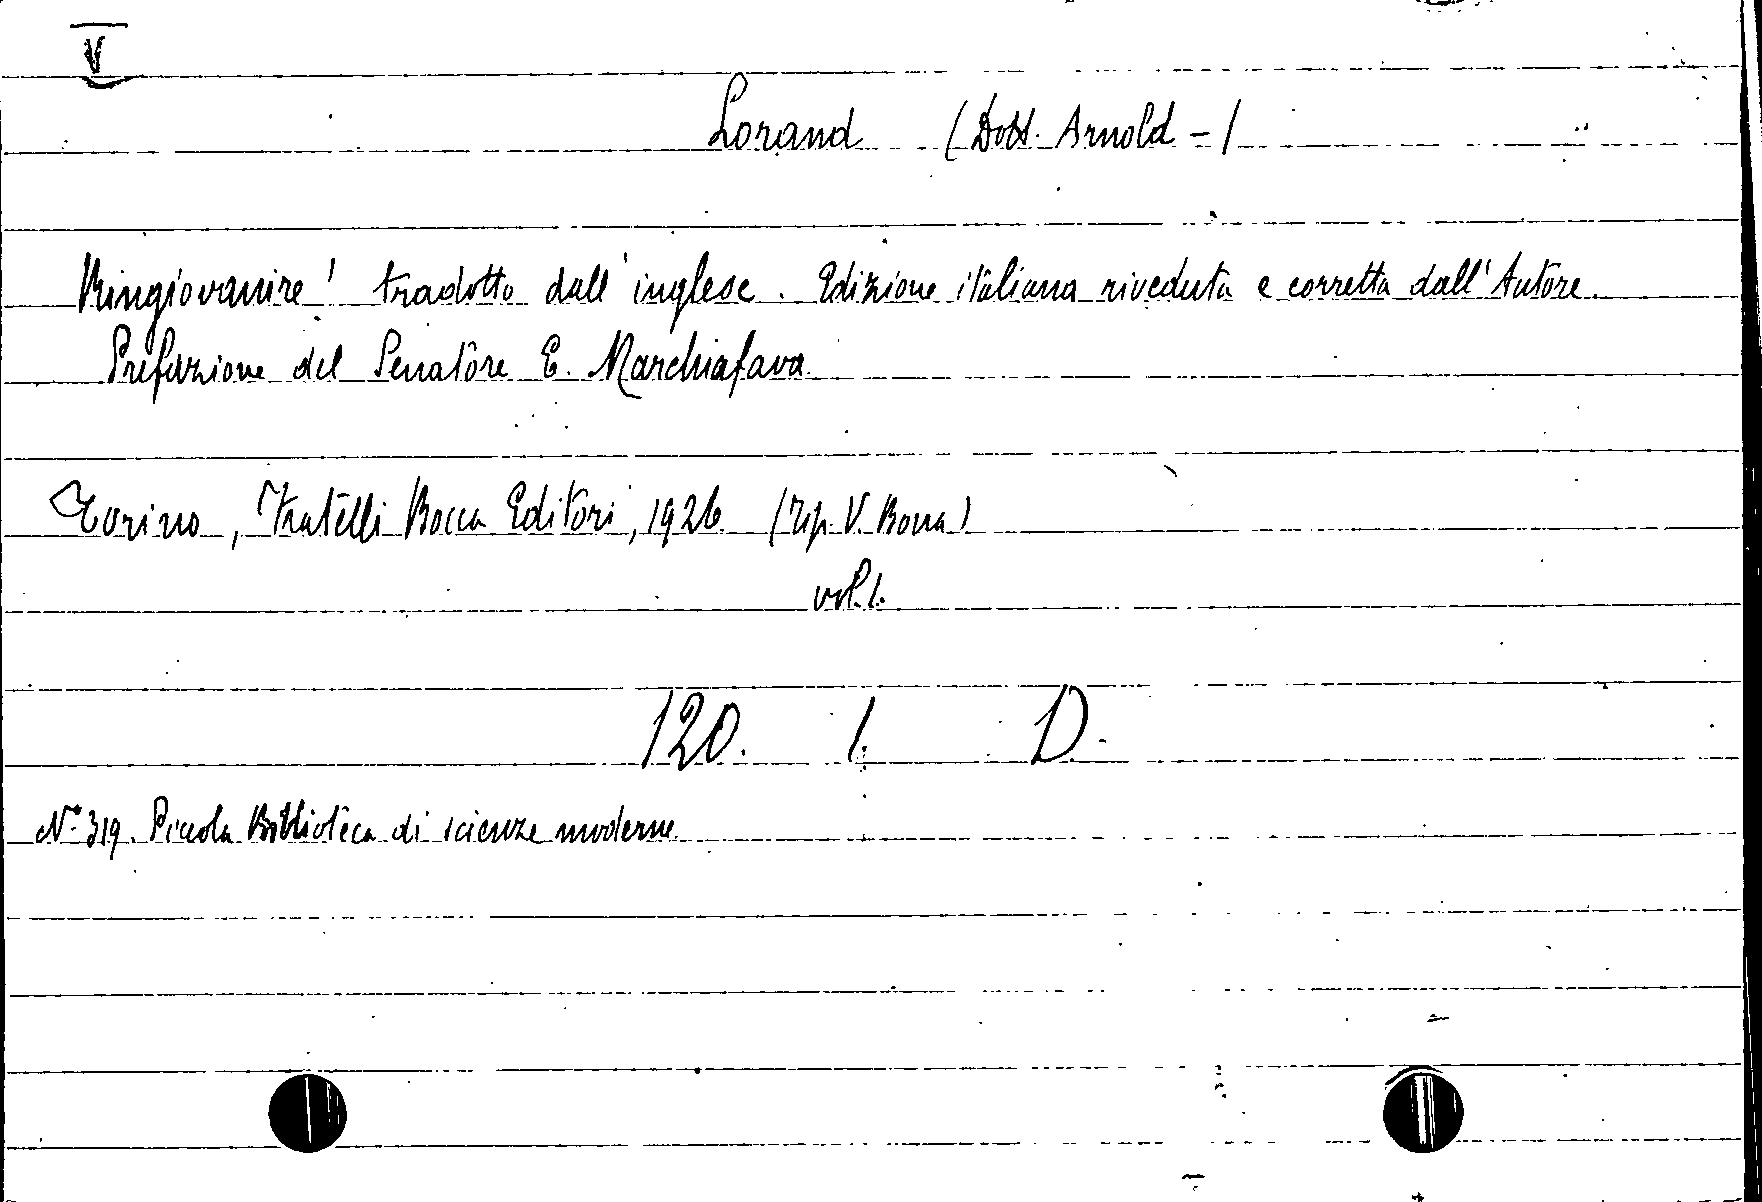 V
Lorand (Dott. Arnold -)
Ringiovanire! tradotto dall'inglese. Edizione italiana riveduta e corretta dall'Autore.
Prefazione del Senatore E. Marchiafava.
Torino, Fratelli Bocca Editori, 1926 (Tip. V. Bona)
vol. 1.
120. 1. D.
N.° 319. Piccola Biblioteca di scienze moderne.